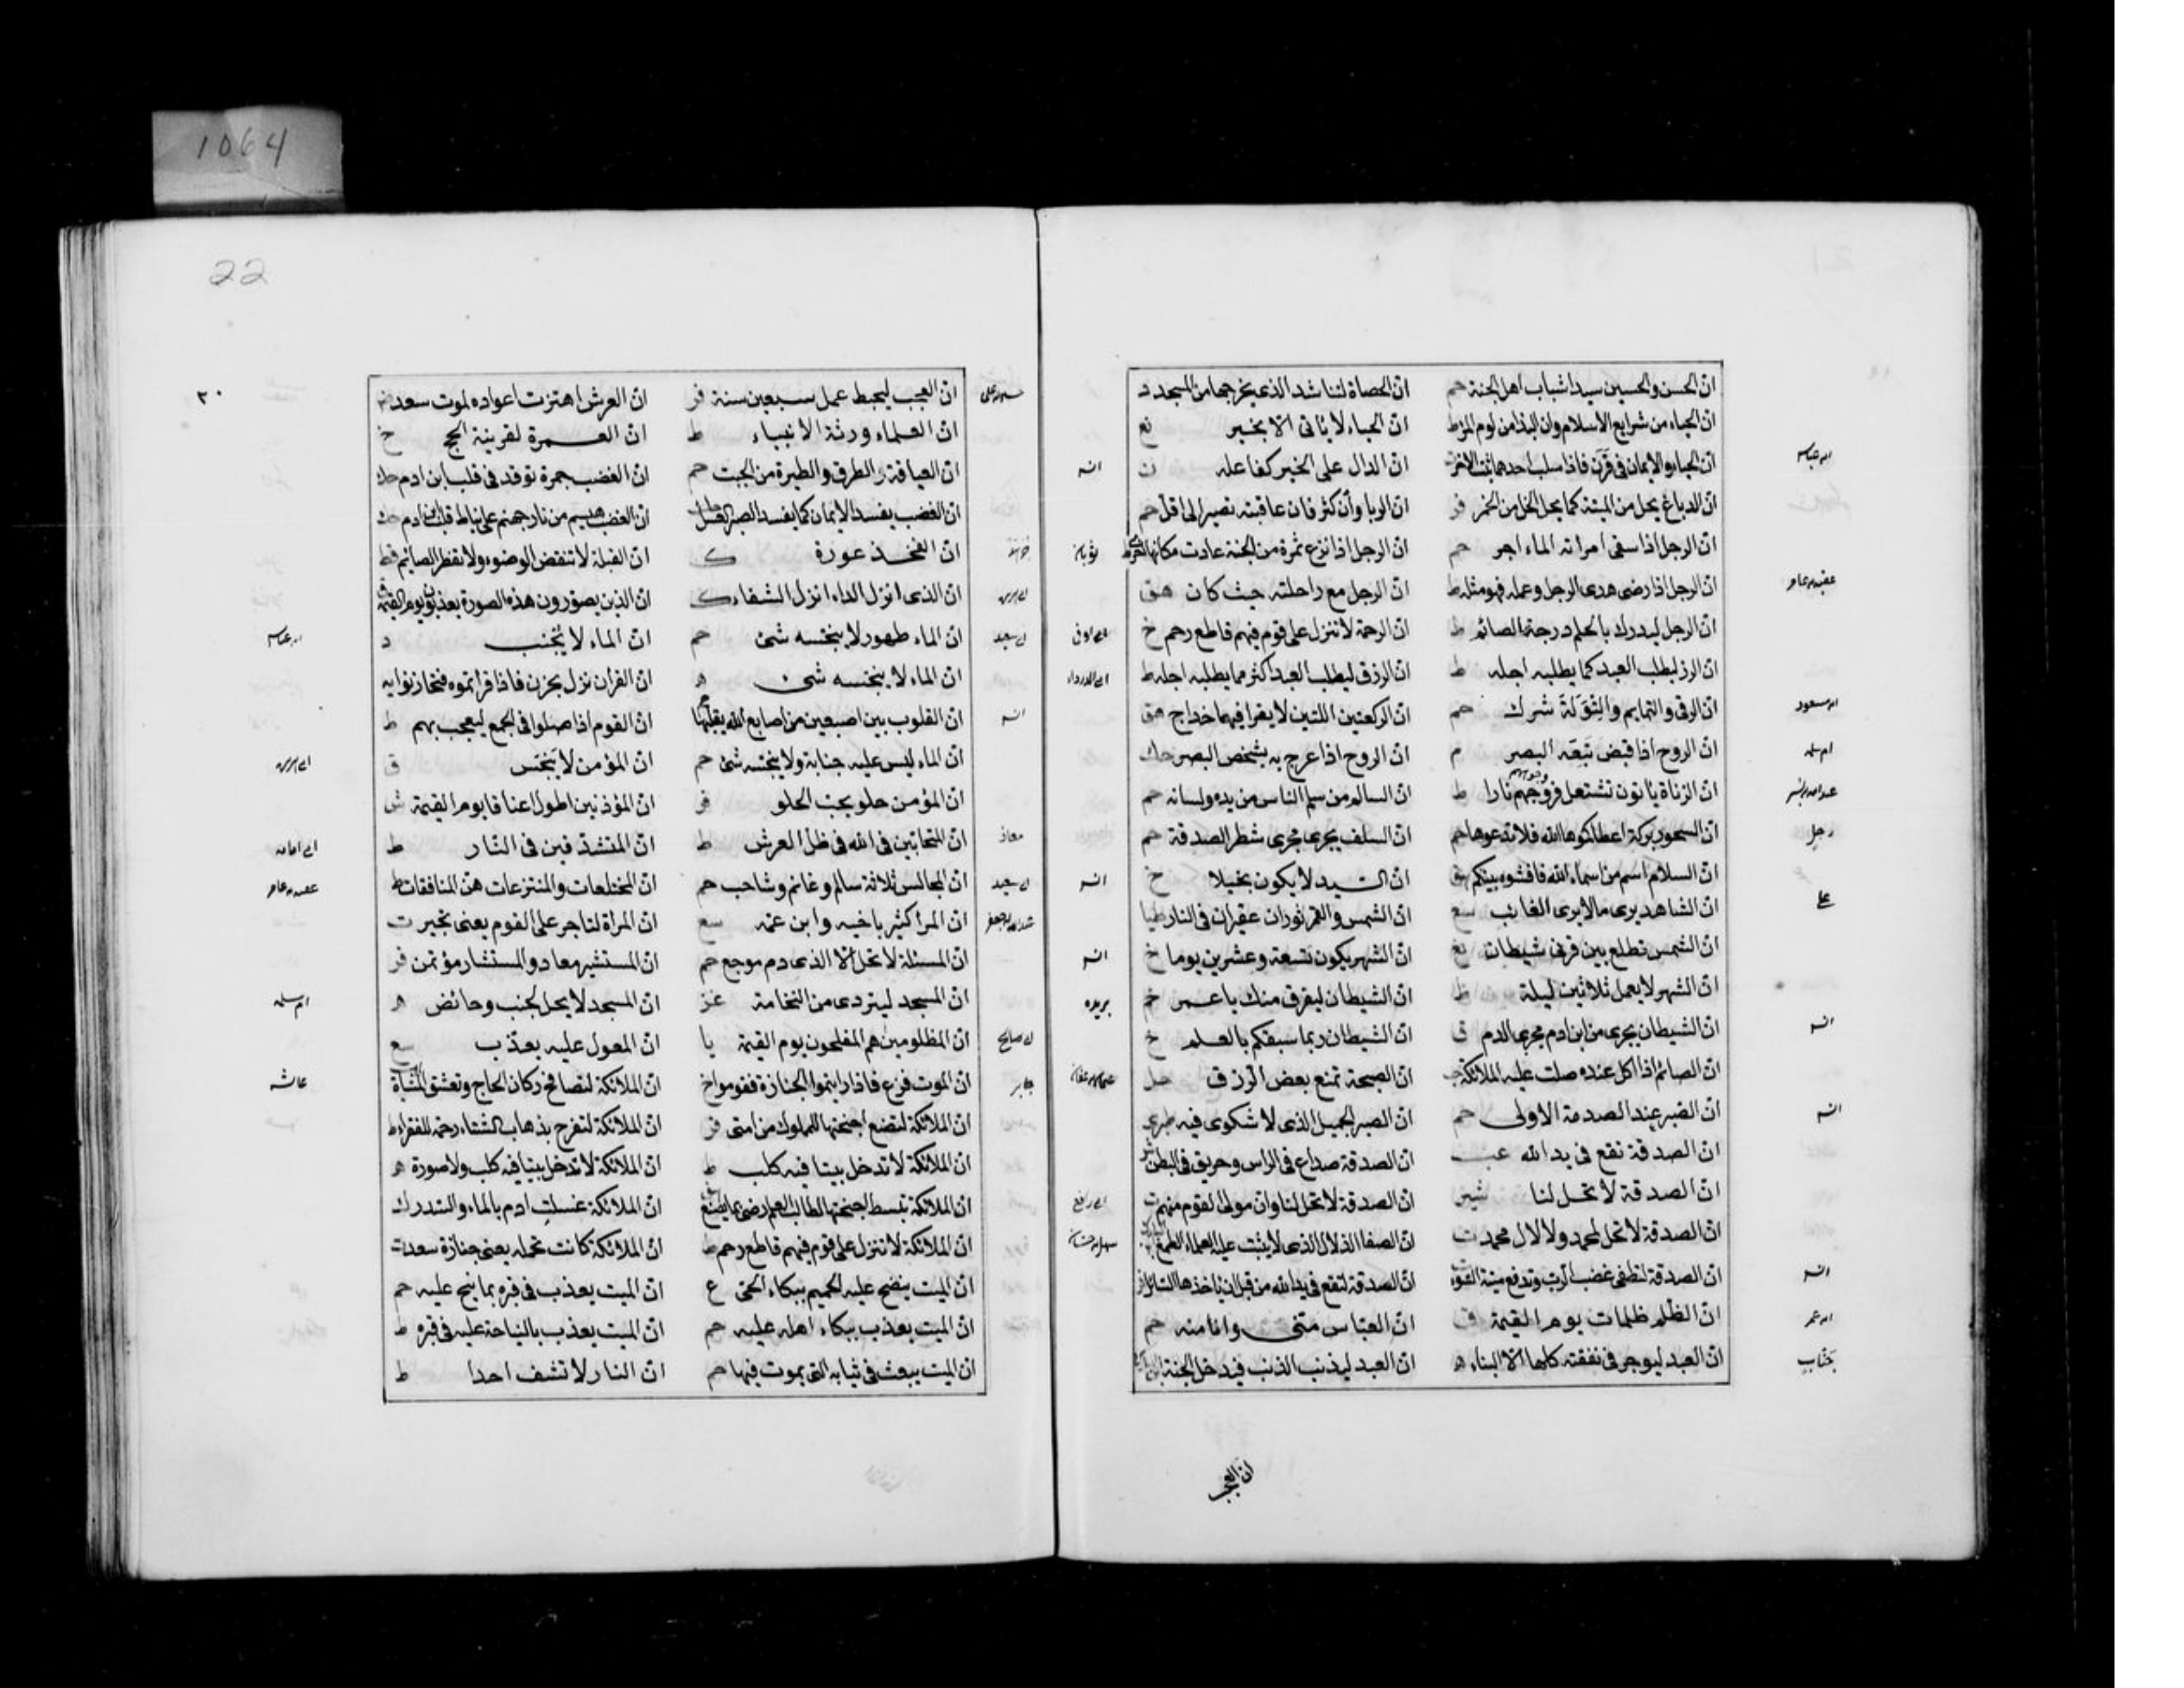 1064
22
٢٠
ان الحسن والحسين سيدا شباب اهل الجنة حم ان الحصاة لتناشد الذى يخرجها من المسجد د
ان الحياء من شرايع الاسلام وان البذا من لوم المرء ط ان الحياء لا ياتى الا بخير نع
ابن عباس ان الحياء والايمان فى قرن فاذا سلب احدهما تبعه الاخر ان الدال على الخير كفاعله ت انس
ان الدباغ يحل من الميتة كما يحل الخل من الخمر فر ان الربا وان كثر فان عاقبته تصير الى اقل حم
ان الرجل اذا سقى امراته الماء اجر حم ان الرجل اذا نزع ثمرة من الجنة عادت مكانها اخرى ط ثوبان
عقبه بن عامر ان الرجل اذا رضى هدى الرجل وعمله فهو مثله ط ان الرجل مع راحلته حيث كان هق
ان الرجل ليدرك بالحلم درجة الصائم ط ان الرحمة لا تنزل على قوم فيهم قاطع رحم خ ابى اوفى
ان الرزق يطلب العبد كما يطلبه اجله ط ان الرزق ليطلب العبد اكثر مما يطلبه اجله ط ابى الدرداء
ابن مسعود ان الرقى والتمايم والتولة شرك حم ان الركعتين اللتين لا يقرا فيهما خداج هق
ام سلمه ان الروح اذا قبض تبعه البصر م ان الروح اذا عرج به يشخص البصر حك
عبدالله بن بسر ان الزناة ياتون تشتعل وجوههم فروجهم نارا ط ان السالم من سلم الناس من يده ولسانه حم
رجل ان السحور بركة اعطاكموها الله فلا تدعوها حم ان السلف يجرى مجرى شطر الصدقة حم
ان السلام اسم من اسماء الله فافشوه بينكم هق ان السيد لا يكون بخيلا خ انس
على ان الشاهد يرى مالا يرى الغائب سع ان الشمس والقمر ثوران عقيران فى النار طيا
ان الشمس تطلع بين قرنى شيطان نع ان الشهر يكون تسعة وعشرين يوما خ انس
ان الشهر لا يكمل ثلاثين ليلة ط ان الشيطان ليفرق منك يا عمر حم بريده
انس ان الشيطان يجرى من ابن ادم مجرى الدم ق ان الشيطان ربما سبقكم بالعلم خ
ان الصائم اذا اكل عنده صلت عليه الملائكة حب ان الصبحة تمنع بعض الرزق حل عثمان بن عفان
انس ان الصبر عند الصدمة الاولى حم ان الصبر الجميل الذى لا شكوى فيه طبرى
ان الصدقة تقع فى يد الله عب ان الصدقة صداع فى الراس وحريق فى البطن
ان الصدقة لا تحل لنا شير ان الصدقة لا تحل لنا وان مولى القوم منهم ت ابى رافع
ان الصدقة لا تحل لمحمد ولا لال محمد ت ان الصفا الذلال الذى لا يثبت عليه العلماء الطمع
انس ان الصدقة لتطفى غضب الرب وتدفع ميتة السوء ان الصدقة لتقع فى يد الله من قبل ان ياخذها السائل فر
ابن عمر ان الظلم ظلمات يوم القيمة ق ان العباس منى وانا منه حم
خباب ان العبد ليوجر فى نفقته كلها الا البناء ه ان العبد ليذنب الذنب فيدخل الجنة
ان العجب
ان العجب ليحبط عمل سبعين سنة فر ان العرش اهتزت اعواده لموت سعد
ان العلماء ورثة الانبياء ط ان العمرة لقرينة الحج خ
ان العيافة والطرق والطيرة من الجبت حم ان الغضب جمرة توقد فى قلب ابن ادم حك
ان الغضب يفسد الايمان كما يفسد الصبر العسل ان الغضب ميسم من نار جهنم على نياط قلب ابن ادم حك
ان الفخذ عورة ك ان القبلة لا تنقض الوضوء ولا تفطر الصايم قط
ان الذى انزل الداء انزل الشفاء ك ان الذين يصورون هذه الصورة يعذبون يوم القيمة
ابى سعيد ان الماء طهور لا ينجسه شئ حم ان الماء لا يجنب د ابن عباس
ان الماء لا ينجسه شئ ه ان القران نزل بحزن فاذا قراتموه فتحازنوا به
انس ان القلوب بين اصبعين من اصابع الله يقلبها ان القوم اذا صلوا فى الجمع ليعجب بهم ط
ان الماء ليس عليه جنابة ولا ينجسه شئ حم ان المؤمن لا ينجس ق
ان المؤمن حلو يحب الحلو فر ان المؤذنين اطول اعناقا يوم القيمة ش
معاذ ان المتحابين فى الله فى ظل العرش ط ان المتشدقين فى النار ط ابى امامه
ابى سعيد ان المجالس ثلاثة سالم وغانم وشاحب حم ان المختلعات والمنتزعات هن المنافقات ط عقبه بن عامر
ان المرا كثير باخيه وابن عمه سع ان المراة لتاجر على القوم يعنى تجير ت
ان المسئلة لا تحل الا لذى دم موجع حم ان المستشير معاد والمستشار مؤتمن فر
ان المسجد لينزوى من النخامة عز ان المسجد لا يحل لجنب وحائض ه ام سلمه
ابى صالح ان المظلومين هم المفلحون يوم القيمة يا ان المعول عليه يعذب سع
جابر ان الموت فزع فاذا رايتموا الجنازة فقوموا خ ان الملائكة لتصافح ركاب الحاج وتعتنق المشاة عائشه
ان الملائكة لتضع اجنحتها للمملوك من امتى فر ان الملائكة لتفرح بذهاب الشتاء رحمة للفقراء ط
ان الملائكة لا تدخل بيتا فيه كلب ط ان الملائكة لا تدخل بيتا فيه كلب ولا صورة ه
ان الملائكة تبسط اجنحتها لطالب العلم رضى بما يصنع ان الملائكة غسلت ادم بالماء والسدر ك
ان الملائكة لا تنزل على قوم فيهم قاطع رحم ط ان الملائكة كانت تحمله يعنى جنازة سعد ت
ان الميت ينضح عليه الحميم ببكاء الحى ع ان الميت يعذب فى قبره بما ينح عليه حم
ان الميت يعذب ببكاء اهله عليه حم ان الميت يعذب بالنياحة عليه فى قبره ط
ان الميت يبعث فى ثيابه التى يموت فيها حم ان النار لا تشف احدا ط